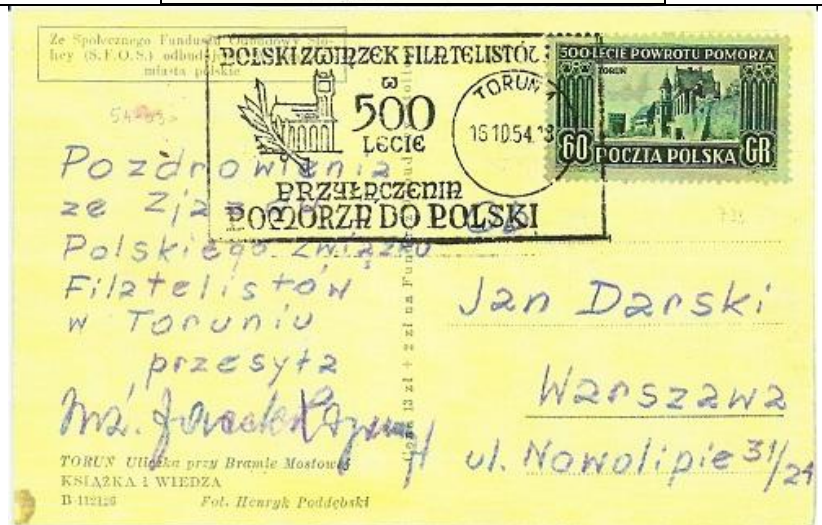 Ze Społecznego Funduszu Odbudowy Sto-
licy (S.F.O.S.) odbud
miasta polskie
POLSKI ZWIĄZEK FILATELISTÓW
W
500
LECIE
PRZYŁĄCZENIA
POMORZA DO POLSKI
TORUŃ
16 10.54.
500-LECIE POWROTU POMORZA
TORUŃ
60 POCZTA POLSKA GR
Pozdrowienia
ze Zjazdu
Polskiego Związku
Filatelistów
w Toruniu
przesyła
Inż. Jacek
Jan Darski
Warszawa
ul. Nowolipie 31/24
Cena 13 zł + 2 zł na Fundusz
TORUŃ Uliczka przy Bramie Mostowej
KSIĄŻKA i WIEDZA
B-112126 Fot. Henryk Poddębski